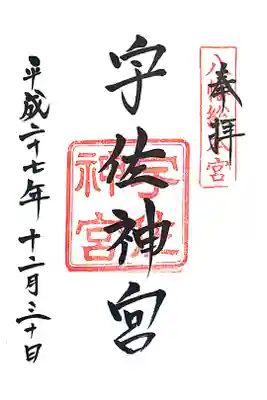 奉拝
宇佐神宮
宇佐
神宮
平成二十七年 十二月三十日